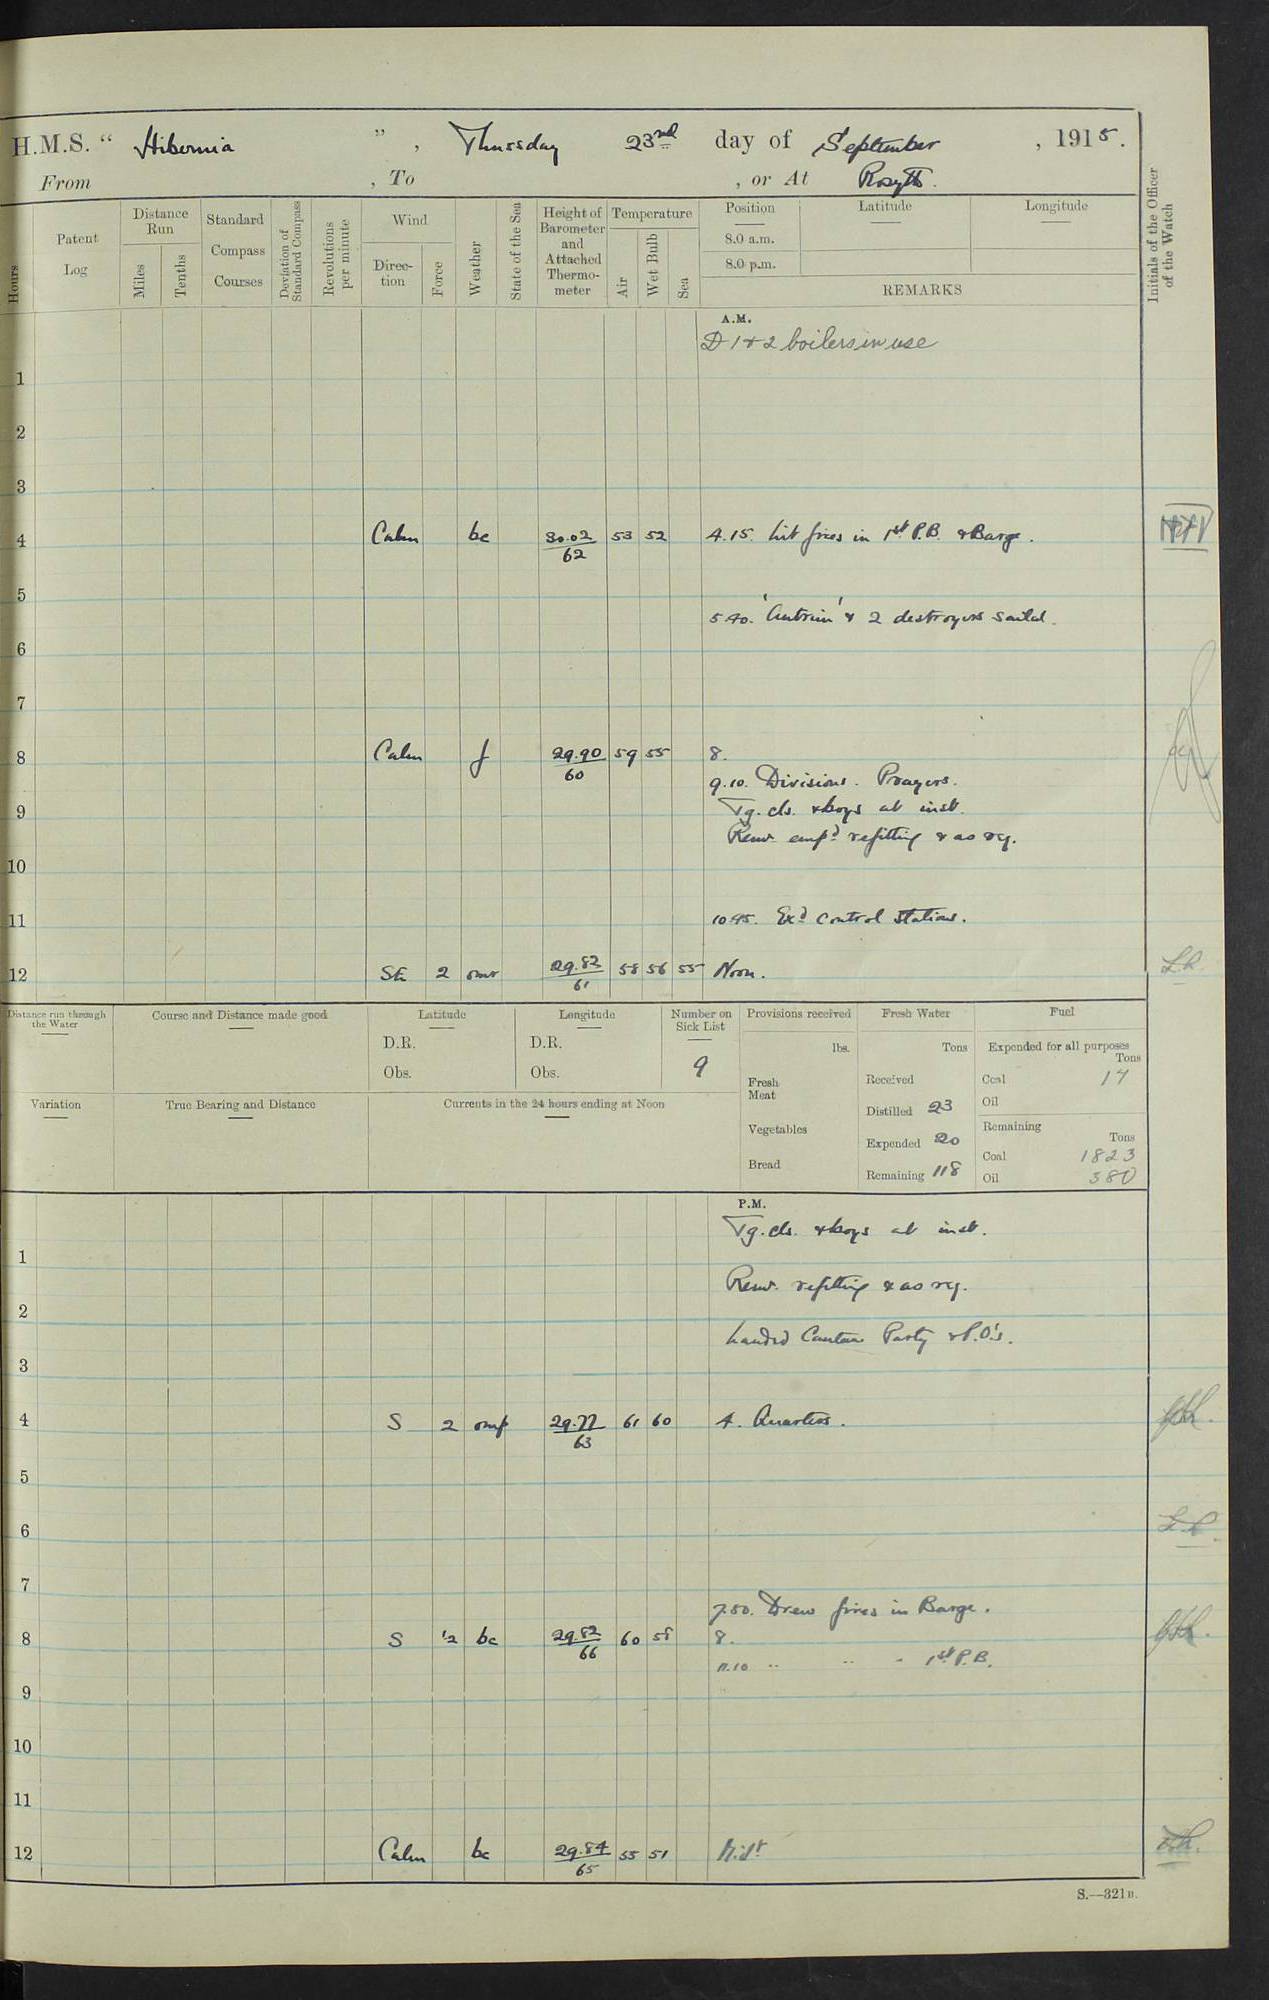 H.M.S. " Hibernia ", Thursday 23rd day of September, 1915.
From , To , or At Rosyth.
Hours
Patent Log
Distance Run
Miles
Tenths
Standard Compass Courses
Deviation of Standard Compass
Revolutions per minute
Wind
Direction
Force
Weather
State of the Sea
Height of Barometer and Attached Thermometer
Temperature
Air
Wet Bulb
Sea
Position
Latitude
Longitude
8.0 a.m.
8.0 p.m.
REMARKS
Initials of the Officer of the Watch
A.M.
D 1 & 2 boilers in use
1
2
3
4 Calm bc 30.02/62 53 52 4.15. Lit fires in 1st P.B. & Barge.
5
5.40. 'Antrim' & 2 destroyers sailed.
6
7
8 Calm f 29.90/60 59 55 8.
9.10. Divisions. Prayers.
9 Tg. cls. & boys at inst.
Remr. emp'd refitting & as rq.
10
11 10.45. Ex'd control stations.
12 SE 2 omr 29.82/61 58 56 55 Noon.
Distance run through the Water
Course and Distance made good
Latitude
D.R.
Obs.
Longitude
D.R.
Obs.
Number on Sick List
9
Provisions received
lbs.
Fresh Meat
Vegetables
Bread
Fresh Water
Tons
Received
Distilled 23
Expended 20
Remaining 118
Fuel
Expended for all purposes
Tons
Coal 17
Oil
Remaining
Tons
Coal 1823
Oil 380
Variation
True Bearing and Distance
Currents in the 24 hours ending at Noon
P.M.
Tg. cls. & boys at inst.
1
Remr. refitting & as rq.
2
Landed Canteen Party & P.O's.
3
4 S 2 omp 29.77/63 61 60 4. Quarters.
5
6
7
7.50. Drew fires in Barge.
8 S 1.2 bc 29.82/66 60 58 8.
11.10 " " " 1st P.B.
9
10
11
12 Calm bc 29.84/65 55 51 Midt
S.—321B.